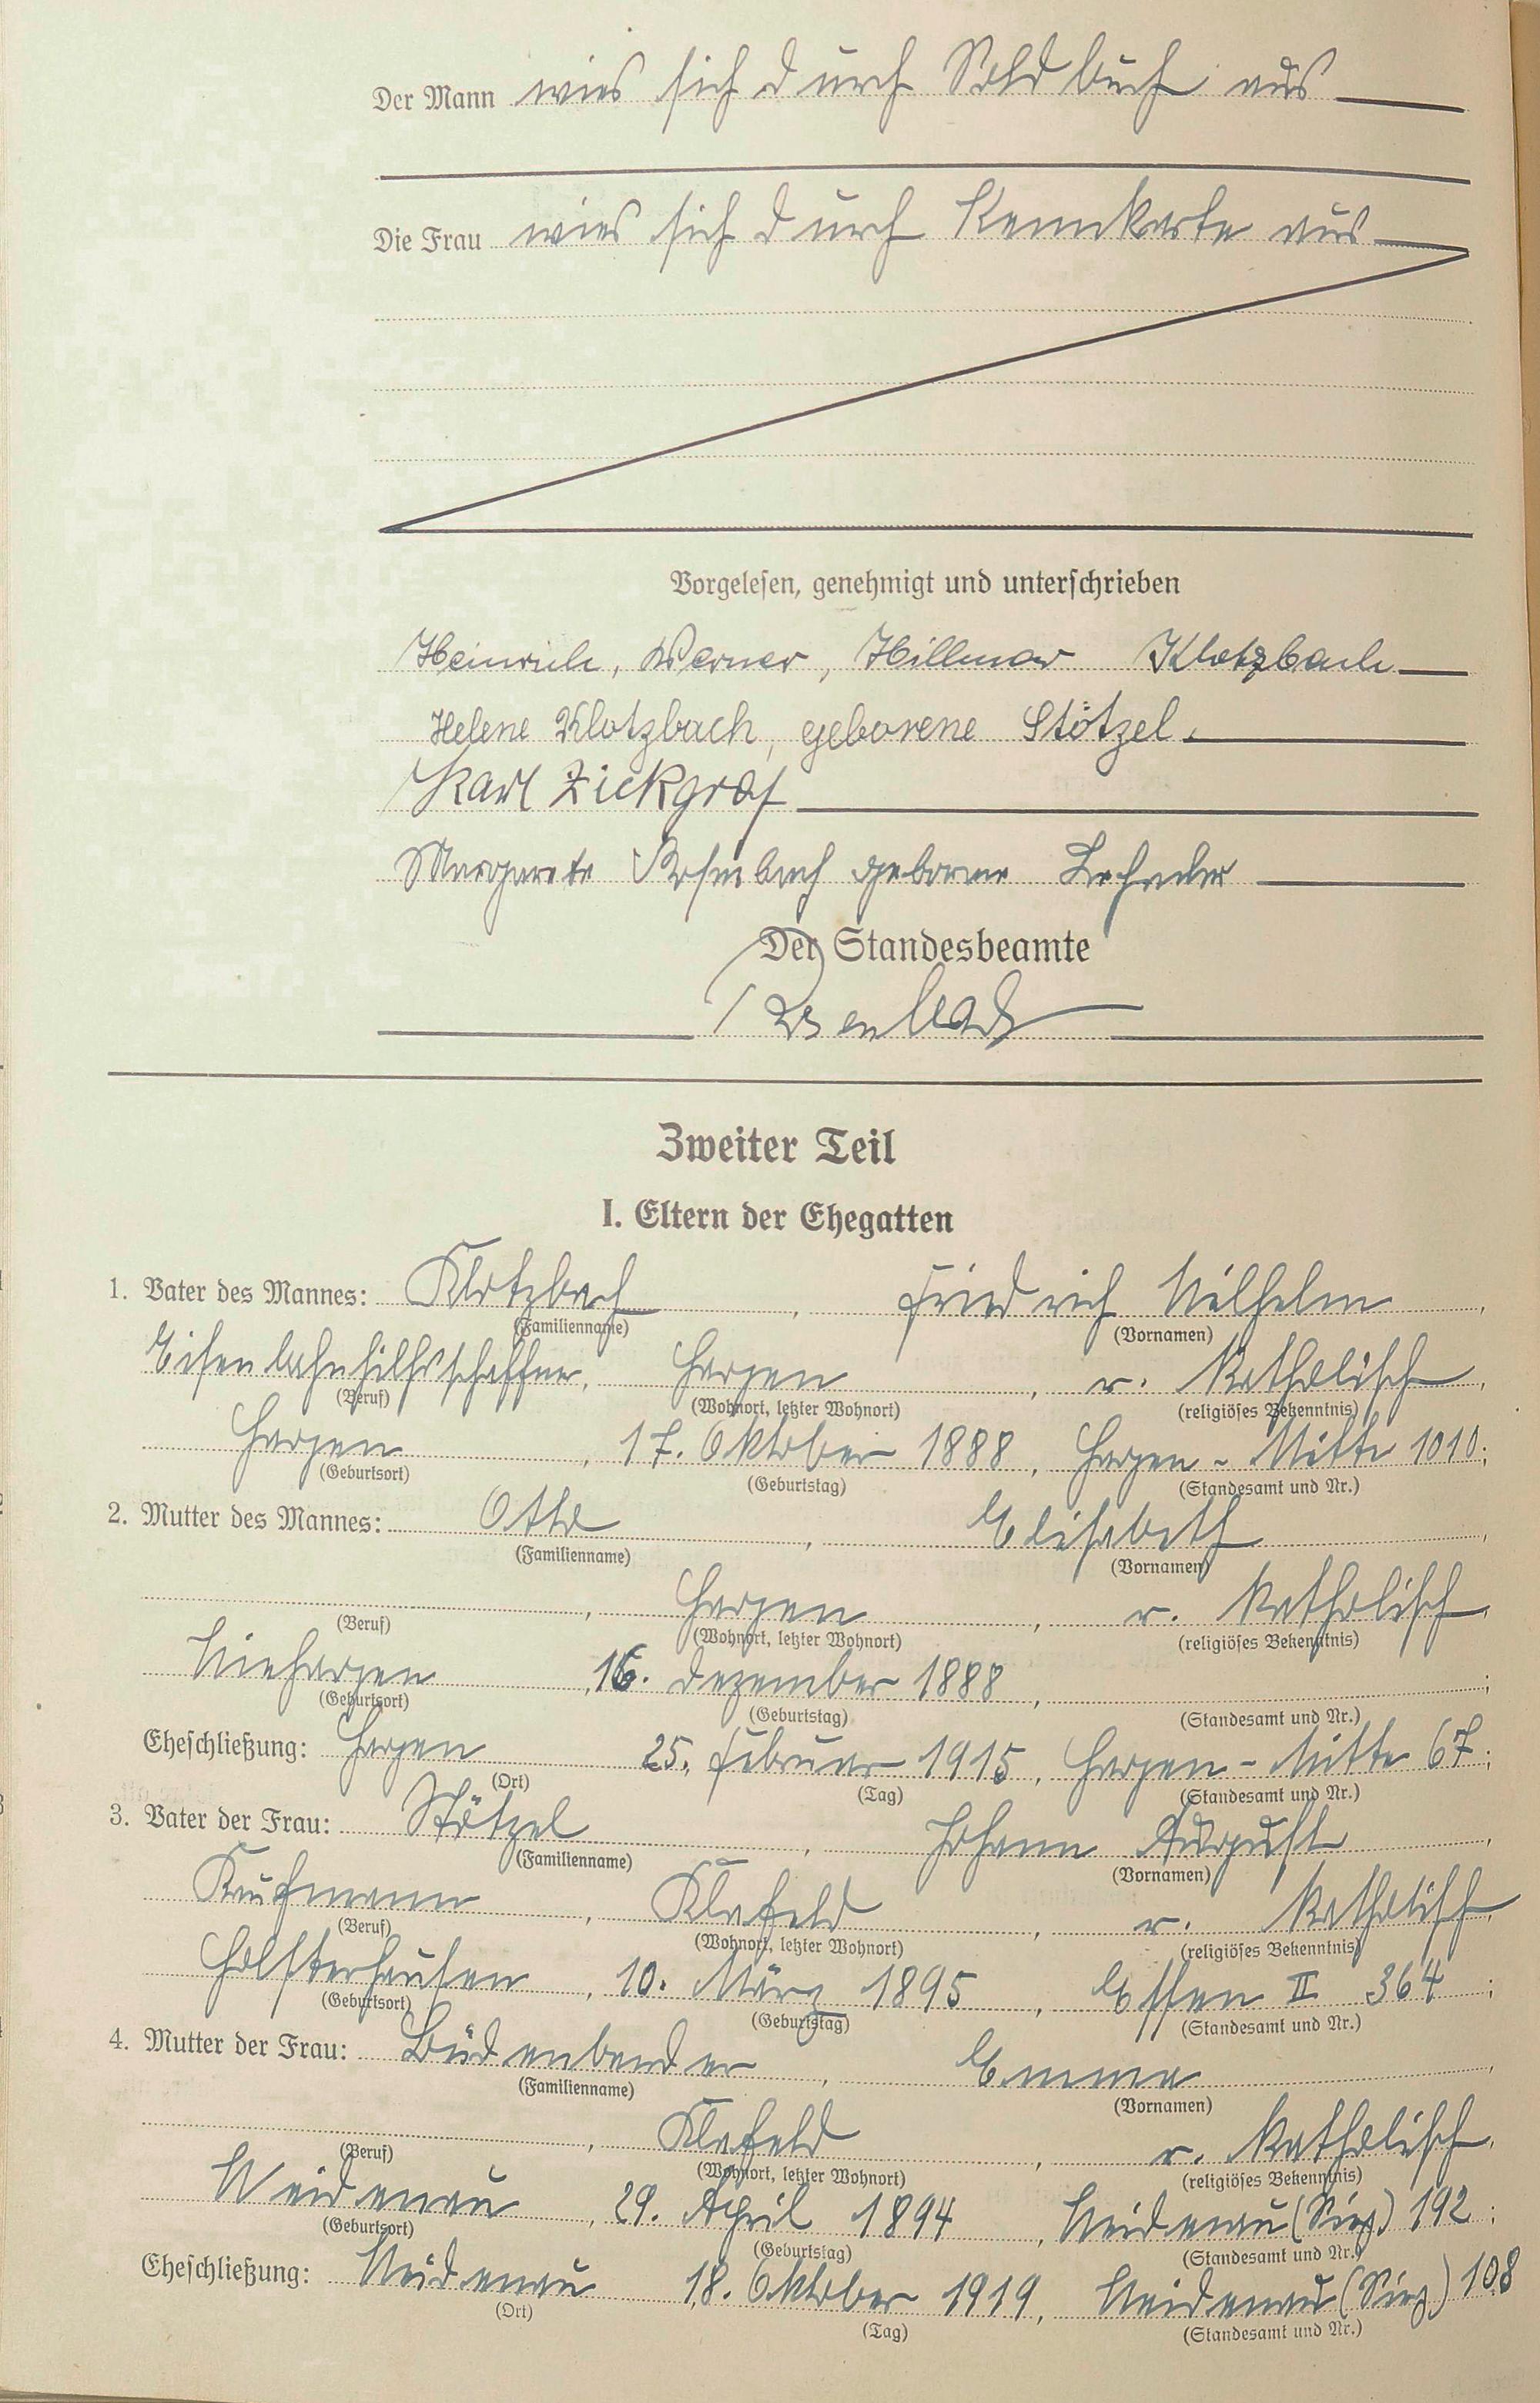 Der Mann wies sich durch Soldbuch aus
Die Frau wies sich durch Kennkarte aus
Vorgelesen, genehmigt und unterschrieben
Heinrich, Werner, Hillmar Klotzbach
Helene Klotzbach, geborene Stötzel.
Karl Zickgraf
Margarete Rosenbach geborene
Der Standesbeamte
Rosenbach
Zweiter Teil
I. Eltern der Ehegatten
1. Vater des Mannes: Klotzbach, Friedrich Wilhelm,
(Familienname) (Vornamen)
Eisenbahnhilfsschaffner, Hagen, r. katholisch,
(Beruf) (Wohnort, letzter Wohnort) (religiöses Bekenntnis)
Hagen, 17. Oktober 1888, Hagen-Mitte 1010;
(Geburtsort) (Geburtstag) (Standesamt und Nr.)
2. Mutter des Mannes: Otto, Elisabeth,
(Familienname) (Vornamen)
, Hagen, r. katholisch,
(Beruf) (Wohnort, letzter Wohnort) (religiöses Bekenntnis)
16. Dezember 1888, ;
(Geburtsort) (Geburtstag) (Standesamt und Nr.)
Eheschließung: Hagen 25. Februar 1915, Hagen-Mitte 67;
(Ort) (Tag) (Standesamt und Nr.)
3. Vater der Frau: Stötzel, Johann August,
(Familienname) (Vornamen)
Kaufmann, Klafeld, r. katholisch,
(Beruf) (Wohnort, letzter Wohnort) (religiöses Bekenntnis)
Holsterhausen, 10. März 1895, Essen II 364;
(Geburtsort) (Geburtstag) (Standesamt und Nr.)
4. Mutter der Frau: Büdenbender, Emma,
(Familienname) (Vornamen)
, Klafeld, r. katholisch,
(Beruf) (Wohnort, letzter Wohnort) (religiöses Bekenntnis)
Weidenau, 29. April 1894, Weidenau (Sieg) 192;
(Geburtsort) (Geburtstag) (Standesamt und Nr.)
Eheschließung: Weidenau 18. Oktober 1919, Weidenau (Sieg) 108
(Ort) (Tag) (Standesamt und Nr.)